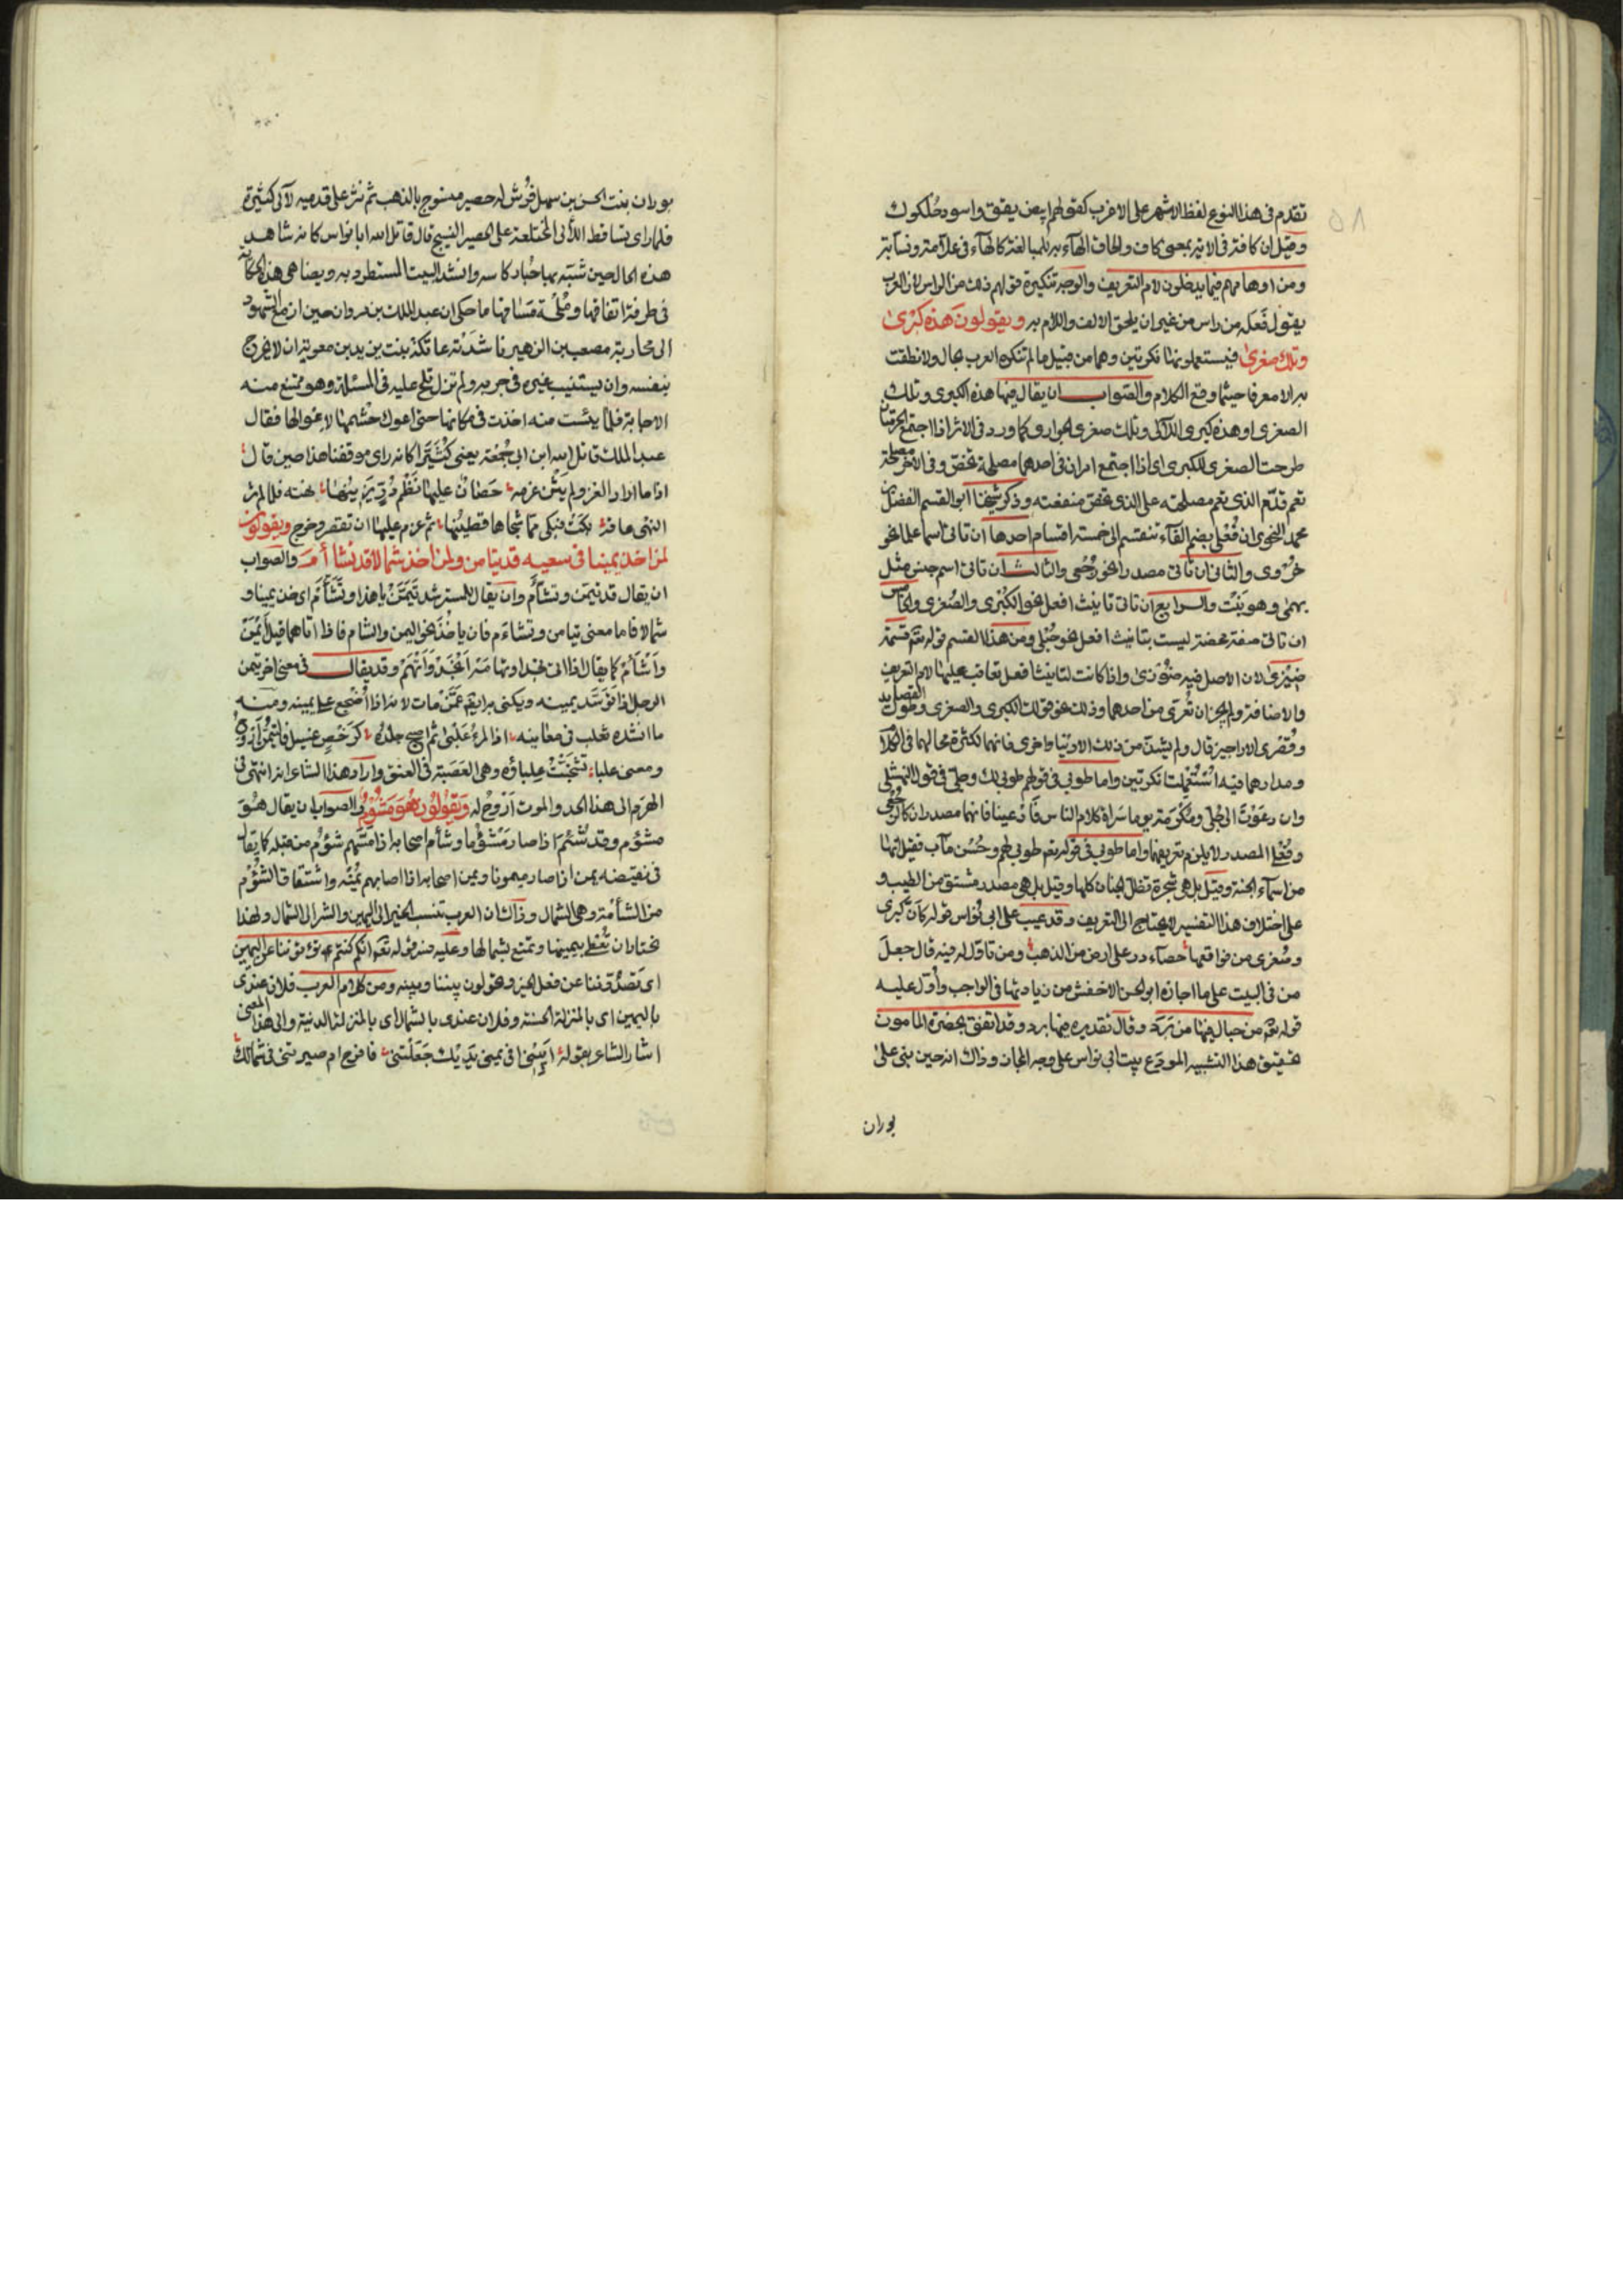 تقدم في هذا النوع لفظ الاشهر على الاغرب كقولهم ابيض يقق واسود حُلكوك
وقيل ان كافة في الاية بمعنى كاف والحاق الهآء به للمبالغة كالهآء في علاّمة ونسّابة
ومن اوهامهم فيما يدخلون لام التعريف والوجه تنكيره قولهم فعله من الراس لان العرب
يقول فَعَله من راس من غير ان يلحق الالف واللام به ويقولون هذه كبرى
وتلك صغرى فيستعملونهما نكرتين وهما من قبيل ما لم تنكره العرب بحال ولا نطقت
به الا معرفا حيثما وقع الكلام والصواب ان يقال فيها هذه الكبرى وتلك
الصغرى او هذه كبرى اللآلى وتلك صغرى الجوارى كما ورد في الاثر اذا اجتمع الحرمتان
طرحت الصغرى للكبرى اى اذا اجتمع امران في احدهما مصلحة تخصّ وفي الاخر مصلحة
تعم قدّم الذى تعم مصلحته على الذى تخص منفعته وذكر شيخنا ابو القسم الفضل بن
محمد النحوى ان فُعْلى بضم الفآء تنقسم الى خمسة اقسام احدها ان تاتى اسما علما نحو
حُزْوى والثانى ان تاتى مصدرا نحو رُجْعى والثالث ان تاتى اسم جنس مثل
بهمى وهو نَبْت والرابع ان تاتى تانيث افعل نحو الكُبْرى والصُغرى والخامس
ان تاتى صفة محضة ليست بتانيث افعل نحو حُبْلى ومن هذا القسم قوله تعٰ قسمة
ضيزى لان الاصل فيه ضُوزى واذا كانت لتانيث افعل تعاقب عليها لام التعريف
والاضافة ولم يجز ان تُعْرّى من احدهما وذلك نحو قولك الكبرى والصغرى وطُولى القصايد
وقُصْرى الاراجيز قال ولم يشذّ من ذلك الا دُنيا واخرى فانهما لكثرة مجالهما في الكلام
ومدارهما فيه استُعملتا نكرتين واما طوبى في قولهم طوبى لك وجلّى في قول النهشلى
وان دعوتَ الى جُلّى ومَكْرُمة يوما سَراةَ كلام الناس فادعينا فانهما مصدران كالرجعى
وفُعْلى المصدر لا يلزم تعريفها واما طوبى في قوله تعٰ طوبى لهم وحُسن مآب فقيل انها
من اسمآء الجنة وقيل بل هى شجرة تظل الجنان كلها وقيل بل هى مصدر مشتق من الطيب و
على اختلاف هذا التفسير لا يحتاج الى التعريف وقد عيب على ابى نُواس قوله كأنّ كبرى
وصُغرى من فواقعها حصباء در على ارض من الذهب ومن تاوّل له فيه قال جعل
من في البيت على ما اجازه ابو الحسن الاخفش من زيادتها في الواجب وأوّل عليه
قوله تعٰ من جبال فيها من بَرَد وقال تقديره فيها برد وقد اتفق بحضرة المامون
تحقيق هذا التشبيه المودَع بيت ابى نواس على وجه المجاز وذاك انه حين بنى على
بوران
بوران بنت الحسن بن سهل فُرُش له حصير منسوج بالذهب ثم نثر على قدميه لآلى كثيرة
فلما راى تساقط اللألى المختلفة على الحصير النسيج قال قاتل الله ابا نواس كانه شاهد
هذه الحال حين شبّه بها حَباب كاسه وانشد البيت المستطرد به ويضاهى هذه الحكاية
في طرفة اتفاقها ومُلْحة مَساقها ما حكى ان عبد الملك بن مروان حين ازمع الشهود
الى محاربة مصعب بن الزهير ناشدَتْه عاتكة بنت يزيد بن معوية ان لا يخرج
بنفسه وان يستنيب غيره في حربه ولم تزل تلحّ عليه في المسئلة وهو ممتنع منه
الاجابة فلما يئست منه اخذت في مكانها حتى اعول حشمها لاعوالها فقال
عبد الملك قاتل الله ابن ابى جُمْعة يعنى كُثَيّرا كانه راى موقفنا هذا حين قال
اذا ما اراد الغزو لم يَثْن عزمه حَصَانٌ عليها نَظْم دُرّ يَزِينُها نهته فلما لم تر
النهى عاقهُ بكَتْ فبكى ممّا شجاها قطينُها ثم عزم عليها ان تقصر وخرج ويقولون
لمن اخذ يمينا في سعيه قد تيامن ولمن اخذ شمالا قد تشأأم والصواب
ان يقال قد تيمّن وتشأّم وان يقال للمسترشد تَيَمّنْ يا هذا وتَشأّم اى خذ يمينا و
شمالا فاما معنى تيامن وتشاءم فان ياخذ نحو اليمن والشام فاذا اتاهما قيل أيْمَنَ
وأشْأَم كما يقال اذا اتى نجدا وتهامة أنْجَدَ وأتْهَم وقد يقال في معنى اخر تيمّن
الرجل اذا توسّد يمينه ويكنى به ايضا عمّن مات لانه اذا أُضْجع على يمينه ومنه
ما انشده ثعلب في معانيه اذا المرءُ عَلْبَى ثم اصبح جلدُه كرَحْضِ غسيل فالتيمّن أروحُ
ومعنى علباء تشنّجَتْ عِلباؤه وهى العَصَبة في العنق واراد هذا الشاعر انه انتهى في
الهرَم الى هذا الحد والموت أروح له ويقولون هو مَشُوم والصواب ان يقال هو
مشؤم وقد شُئم اذا صار مَشْؤما وشأم اصحابه اذا مسّهم شؤم من قبله كما يقال
في نقيضه يمن اذا صار ميمونا ويمن اصحابه اذا اصابهم يُمْنه واشتقاق الشؤم
من الشأمة وهى الشمال وذاك ان العرب تنسب الخير الى اليمين والشر الى الشمال ولهذا
تختار ان تُعْطى بيمينها وتمنع بشمالها وعليه فسر قوله تعٰ انكم كنتم تأتوننا عن اليمين
اى تَصدّوننا عن فعل الخير وتحولون بيننا وبينه ومن كلام العرب فلان عندى
باليمين اى بالمنزلة الحسنة وفلان عندى بالشمال اى بالمنزلة الدنية والى هذا المعنى
اشار الشاعر بقوله ابِينى افى يمنى يديك جَعَلْتنى فافرح ام صيرتنى في شمالك